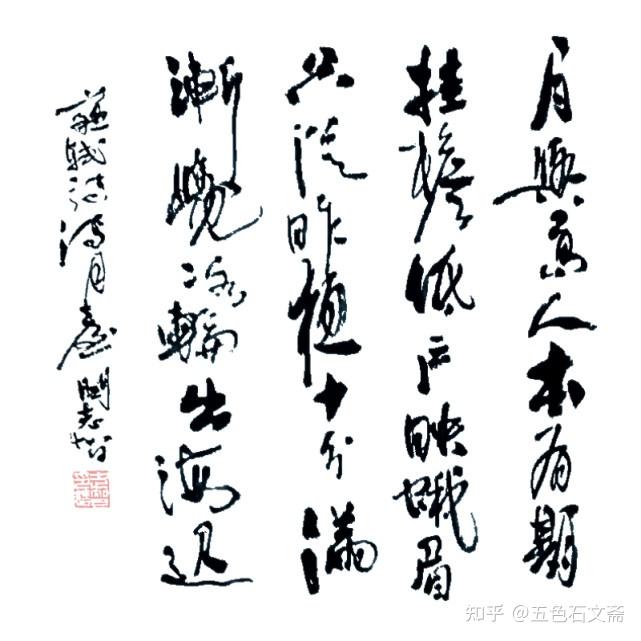 月與高人本有期
挂檐低户映蛾眉
只從昨十分滿
漸覺冰輪出海迟
蘇軾詩待月臺
知乎 @五色石文斋